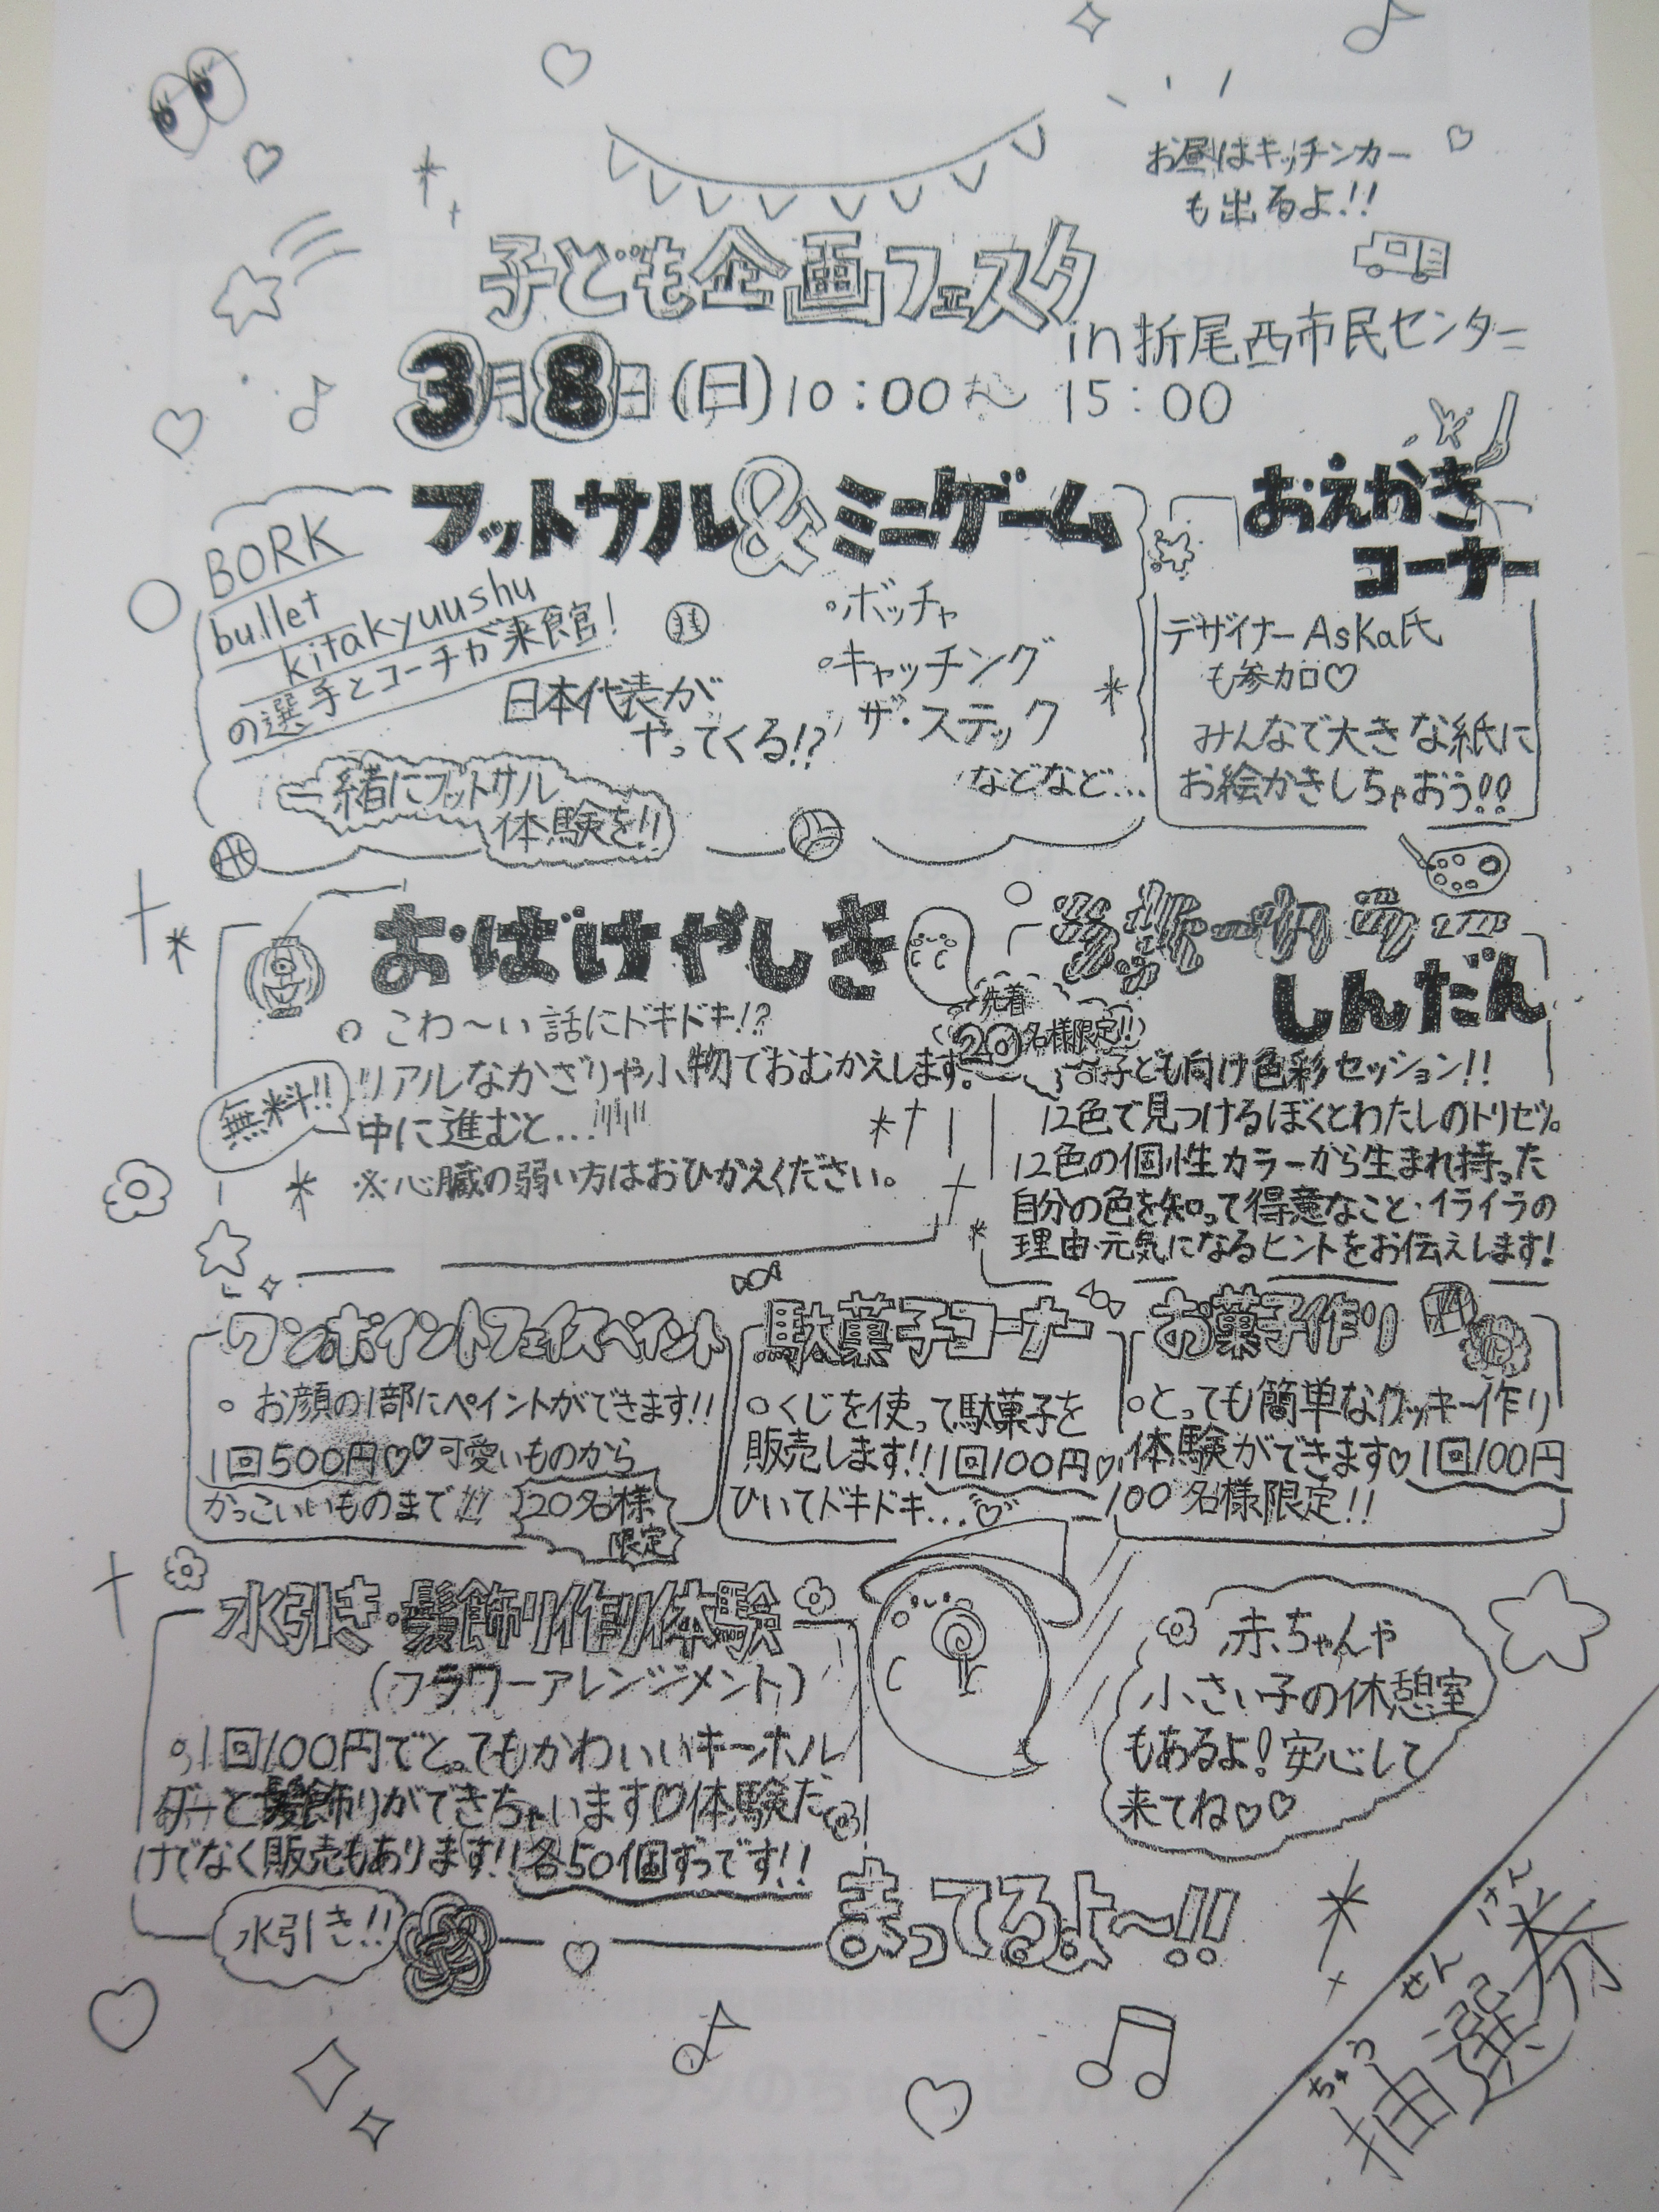 お昼はキッチンカー
も出るよ!!
子ども企画フェスタ
in折尾西市民センター
3月8日(日)10:00から15:00
フットサル&ミニゲーム
BORK
bullet
kitakyuushu
の選手とコーチが来館!
日本代表が
やってくる!?
一緒にフットサル
体験を!!
ボッチャ
キャッチング
ザ・ステック
などなど…
おえかき
コーナー
デザイナーAsKa氏
も参加♡
みんなで大きな紙に
お絵かきしちゃおう!!
おばけやしき
こわ〜い話にドキドキ!?
リアルなかざりや小物でおむかえします。
中に進むと…
※心臓の弱い方はおひかえください。
無料!!
カラー
しんだん
先着
20名様限定!!
子ども向け色彩セッション!!
12色で見つけるぼくとわたしのトリセツ。
12色の個性カラーから生まれ持った
自分の色を知って得意なこと・イライラの
理由・元気になるヒントをお伝えします!
ワンポイントフェイスペイント
お顔の1部にペイントができます!!
1回500円♡♡可愛いものから
かっこいいものまで!!!
20名様
限定
駄菓子コーナー
くじを使って駄菓子を
販売します!!1回100円♡
ひいてドキドキ…♡
お菓子作り
とっても簡単なクッキー作り
体験ができます♡1回100円
100名様限定!!
水引き・髪飾り作り体験
(フラワーアレンジジメント)
1回100円でとってもかわいいキーホル
ダーと髪飾りができちゃいます♡体験だ
けでなく販売もあります!!各50個ずつです!!
水引き!!
赤ちゃんや
小さい子の休憩室
もあるよ!安心して
来てね♡♡
まってるよ〜!!!
ちゅう せん けん
抽選券